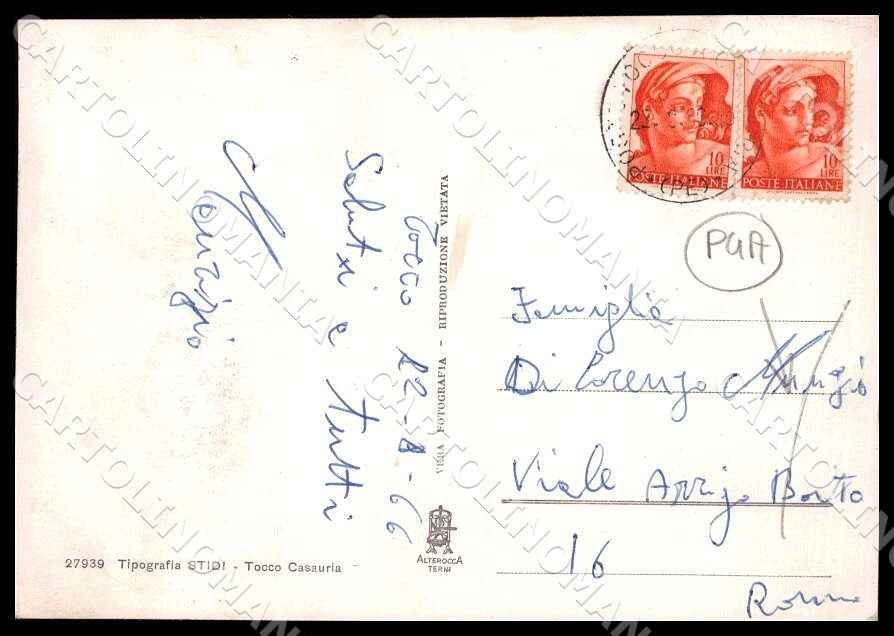 Tocco 22-8-66
Saluti a tutti
Nunzio
VERA FOTOGRAFIA - RIPRODUZIONE VIETATA
ALTEROCCA
TERNI
27939 Tipografia STIDI - Tocco Casauria
10
LIRE
POSTE ITALIANE
10
LIRE
POSTE ITALIANE
(PE)
PGA
Famiglia
Di Lorenzo Nunzio
Viale Arrigo Boito
16
Roma
CARTOLINOMANIA